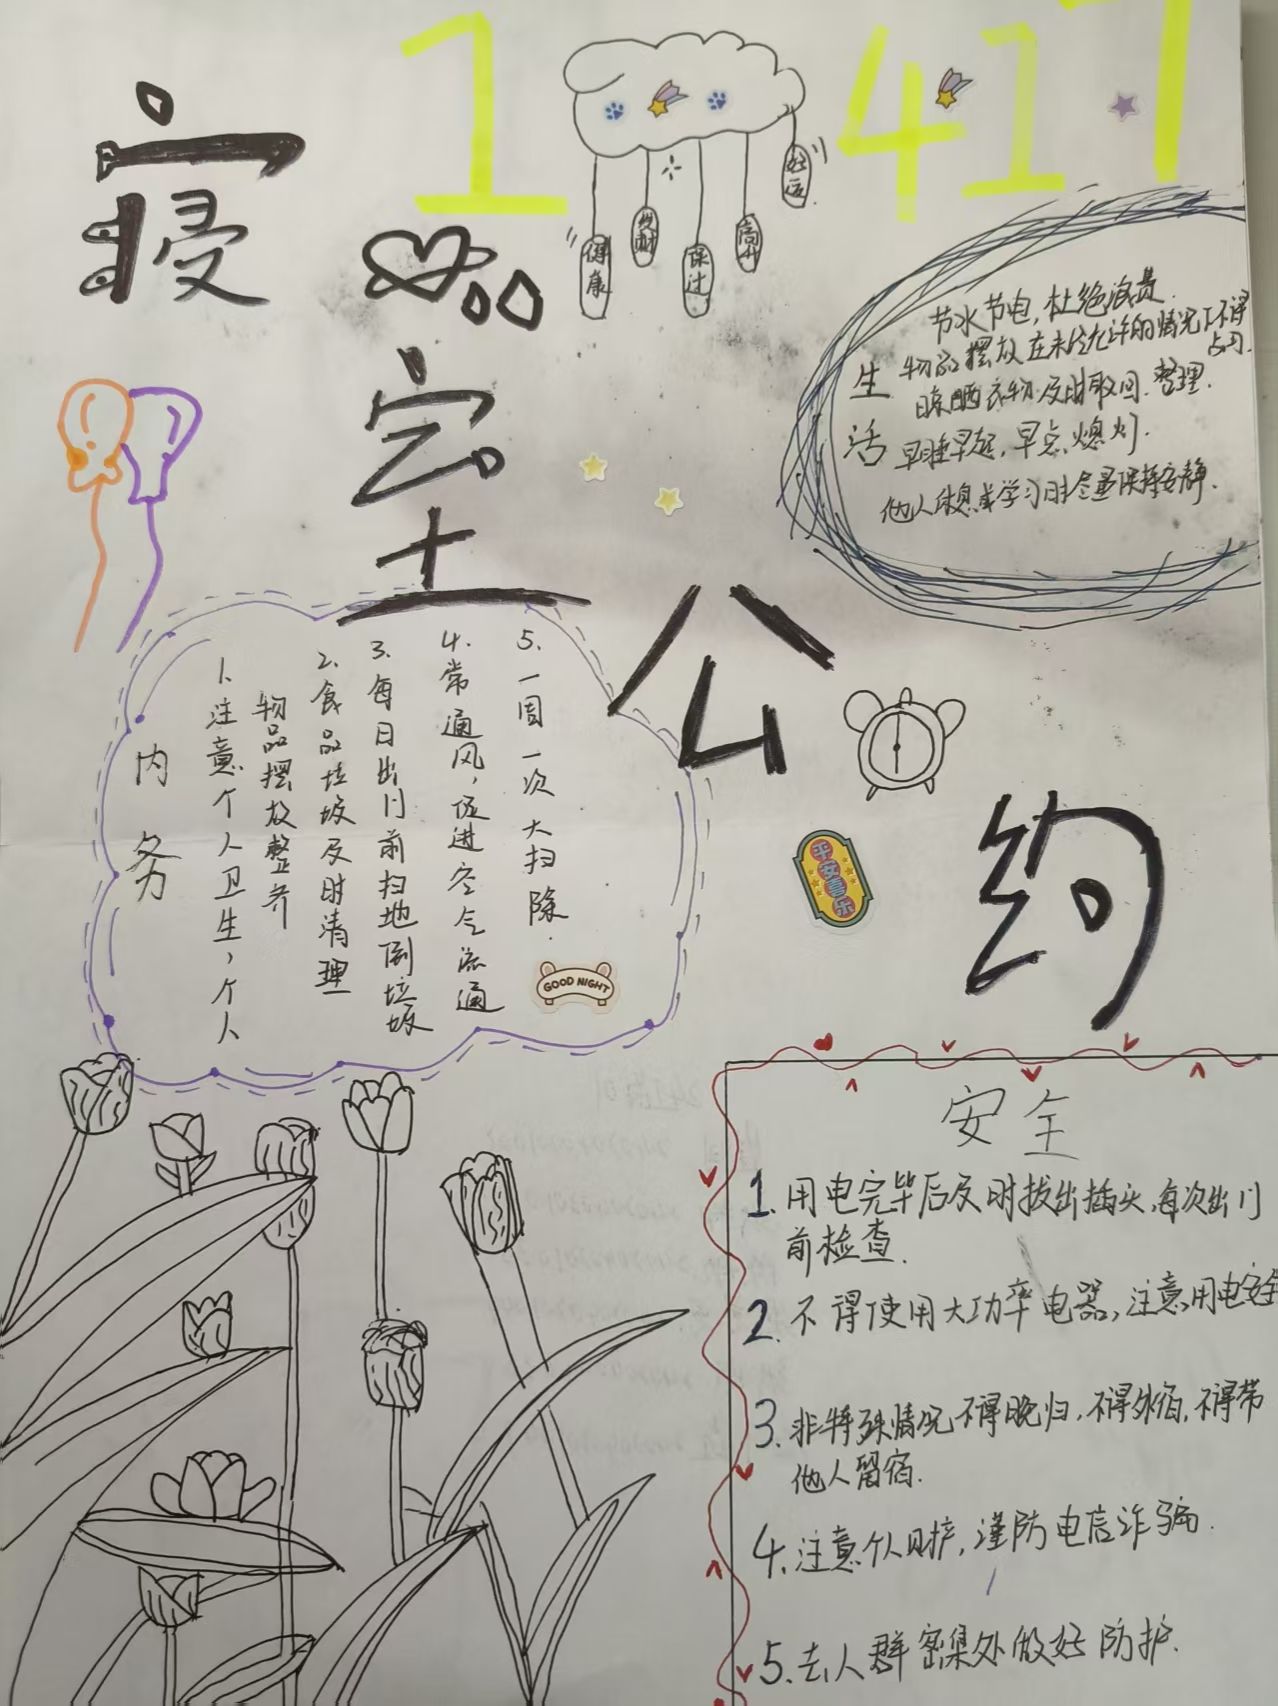 1 417
寝室公约
健康
发财
保过
高升
好运
生活
节水节电,杜绝浪费.
物品摆放在未经允许的情况下不得占用.
晾晒衣物及时取回.整理.
早睡早起,早点熄灯.
他人休息或学习时尽量保持安静.
内务
1.注意个人卫生,个人
物品摆放整齐
2.食品垃圾及时清理
3.每日出门前扫地倒垃圾
4.常通风,促进空气流通
5.一周一次大扫除.
GOOD NIGHT
平安喜乐
安全
1.用电完毕后及时拔出插头,每次出门
前检查.
2.不得使用大功率电器,注意用电安全
3.非特殊情况不得晚归,不得外宿,不得带
他人留宿.
4.注意个人财护,谨防电信诈骗.
5.去人群密集处做好防护.